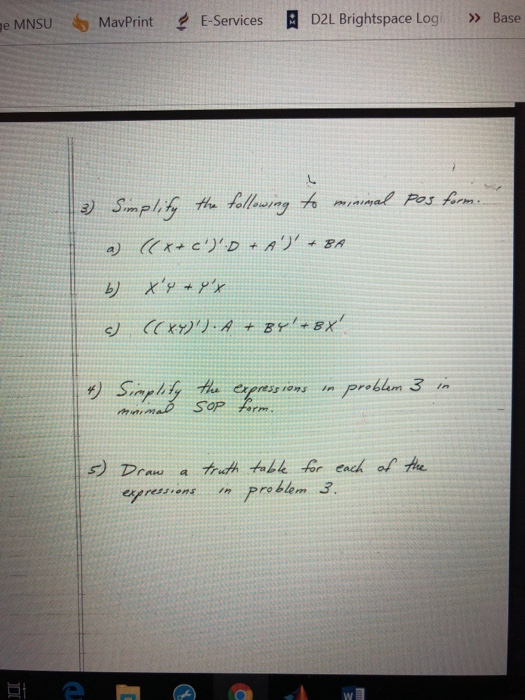 ge MNSU MavPrint E-Services D2L Brightspace Logi >> Base
3) Simplify the following to minimal POS form.
a) ((X + C')'·D + A')' + BA
b) X'Y + Y'X
c) ((XY)')·A + BY' + BX'
4) Simplify the expressions in problem 3 in
minimal SOP form.
5) Draw a truth table for each of the
expressions in problem 3.